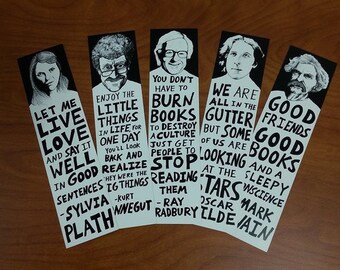 LET ME
LIVE
LOVE
AND SAY IT
WELL
IN GOOD
SENTENCES
-SYLVIA
PLATH
ENJOY THE
LITTLE
THINGS
IN LIFE FOR
ONE DAY
YOU'LL LOOK
BACK AND
REALIZE
THEY WERE THE
BIG THINGS
-KURT
VONNEGUT
YOU DON'T
HAVE TO
BURN
BOOKS
TO DESTROY
A CULTURE
JUST GET
PEOPLE TO
STOP
READING
THEM
-RAY
RADBURY
WE ARE
ALL IN THE
GUTTER
BUT SOME
OF US ARE
LOOKING
AT THE
STARS
OSCAR
WILDE
GOOD
FRIENDS
GOOD
BOOKS
AND A
SLEEPY
CONSCIENCE
MARK
TWAIN